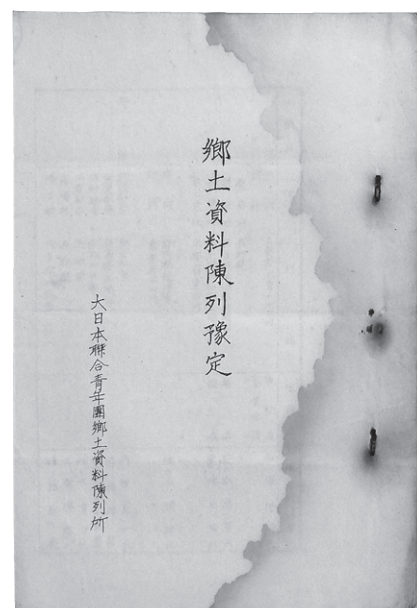 鄕土資料陳列豫定
大日本聯合靑年團鄕土資料陳列所